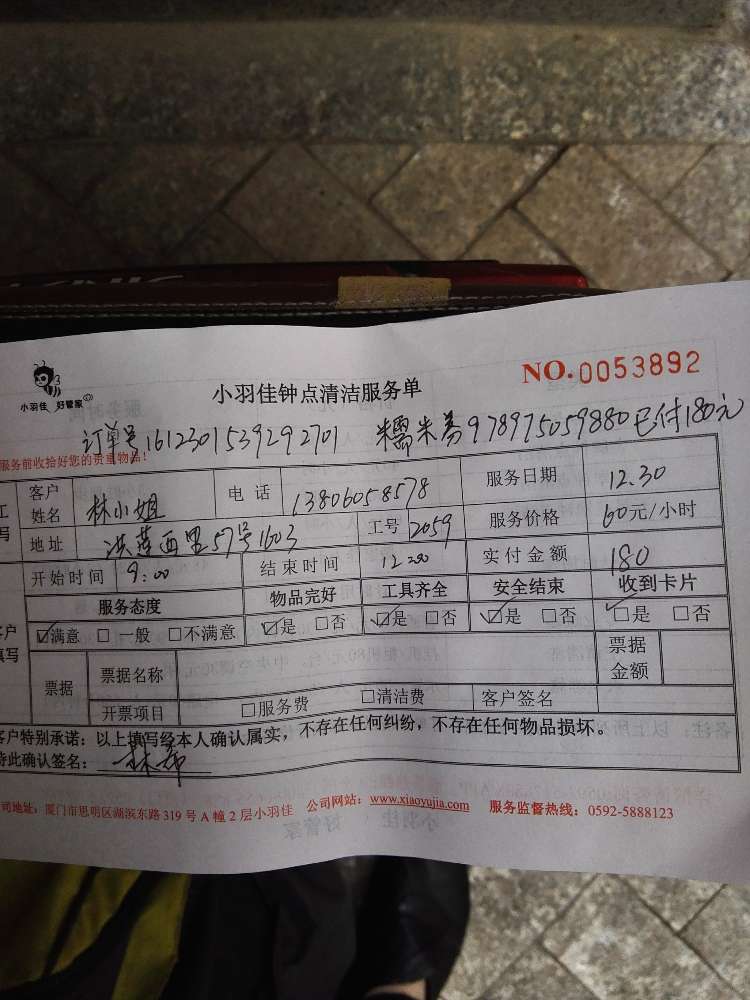 小羽佳 好管家
小羽佳钟点清洁服务单
NO.0053892
订单号1612301539292701 糯米券978975059880已付180元
服务前收拾好您的贵重物品!
客户姓名 林小姐 电话 13806058578 服务日期 12.30
地址 洪莲西里57号1603 工号 2059 服务价格 60元/小时
开始时间 9:00 结束时间 12:00 实付金额 180
服务态度 物品完好 工具齐全 安全结束 收到卡片
☑满意 □一般 □不满意 ☑是 □否 ☑是 □否 ☑是 □否 ☑是 □否
票据 票据名称 票据金额
开票项目 □服务费 □清洁费 客户签名
客户特别承诺:以上填写经本人确认属实,不存在任何纠纷,不存在任何物品损坏。
特此确认签名:林
司地址:厦门市思明区湖滨东路319号A幢2层小羽佳 公司网站:www.xiaoyujia.com 服务监督热线:0592-5888123